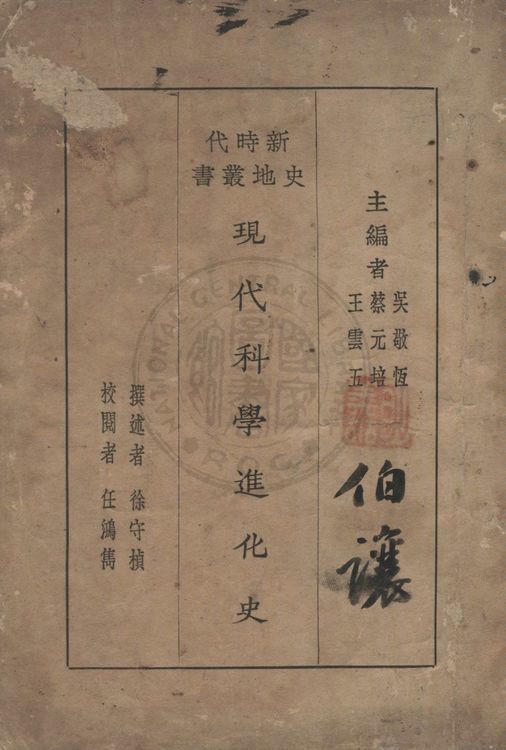 主編者
吳敬恆
蔡元培
王雲五
伯讓
新時代
史地叢書
現代科學進化史
撰述者 徐守楨
校閱者 任鴻雋
NATIONAL CENTRAL LIBRARY
R.O.C.